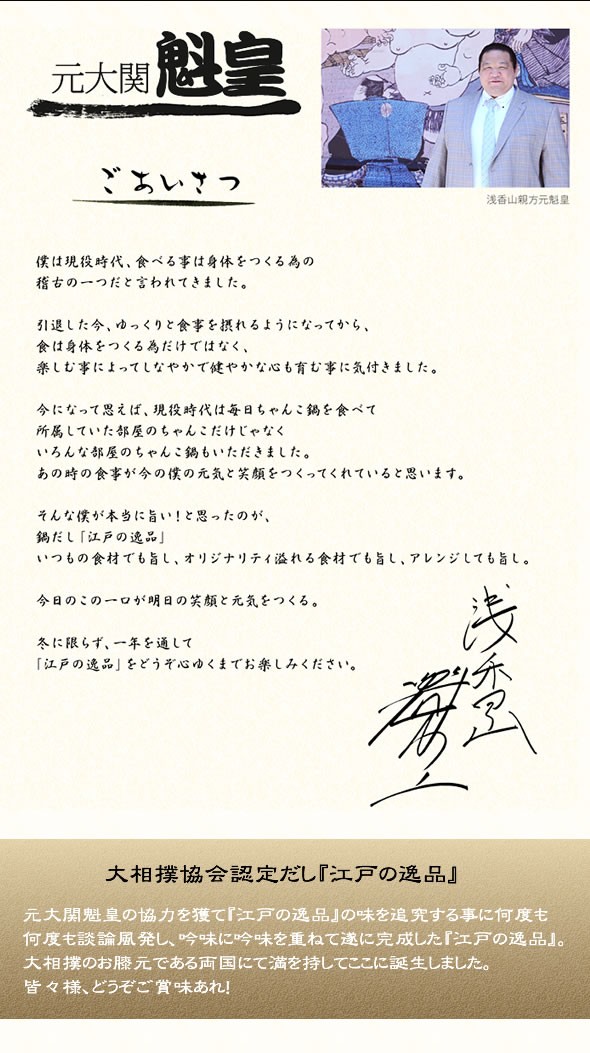 元大関 魁皇
浅香山親方元魁皇
ごあいさつ
僕は現役時代、食べる事は身体をつくる為の
稽古の一つだと言われてきました。
引退した今、ゆっくりと食事を摂れるようになってから、
食は身体をつくる為だけではなく、
楽しむ事によってしなやかで健やかな心も育む事に気付きました。
今になって思えば、現役時代は毎日ちゃんこ鍋を食べて
所属していた部屋のちゃんこだけじゃなく
いろんな部屋のちゃんこ鍋もいただきました。
あの時の食事が今の僕の元気と笑顔をつくってくれていると思います。
そんな僕が本当に旨い!と思ったのが、
鍋だし「江戸の逸品」
いつもの食材でも旨し、オリジナリティ溢れる食材でも旨し、アレンジしても旨し。
今日のこの一口が明日の笑顔と元気をつくる。
冬に限らず、一年を通して
「江戸の逸品」をどうぞ心ゆくまでお楽しみください。
浅香山
大相撲協会認定だし『江戸の逸品』
元大関魁皇の協力を獲て『江戸の逸品』の味を追究する事に何度も
何度も談論風発し、吟味に吟味を重ねて遂に完成した『江戸の逸品』。
大相撲のお膝元である両国にて満を持してここに誕生しました。
皆々様、どうぞご賞味あれ!